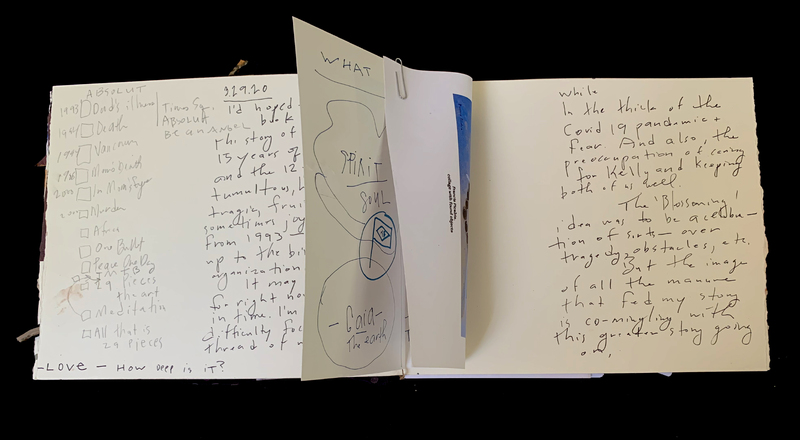 ABSOLUT
1993 Dad's illness
Death
Vancouver
Mom's Death
2000 In Mom's
Murder
Africa
One Bullet
Peace One Day
29 pieces
the art
Meditation
All that is
29 pieces
Times Sq.
ABSOLUT
BE AN ANGEL
9.29.20
I'd hoped
book
The story of
15 years of
and the 12
tumultous,
tragic
sometimes
from 1993
up to the
organization
It may
for right
in time. I'm
difficulty
thread of
-LOVE - HOW DEEP IS IT?
WHAT
SPIRIT
SOUL
- Gaia -
The earth
collage with found objects
while
In the thick of the
Covid 19 pandemic +
fear. And also, the
preoccupation of caring
for Kelly and keeping
both of us well.
The 'Blossoming'
idea was to be a celebra-
tion of sorts - over
tragedy, obstacles, etc.
But the image
of all the manure
that fed my story
is co-mingling with
this greater story going
on,